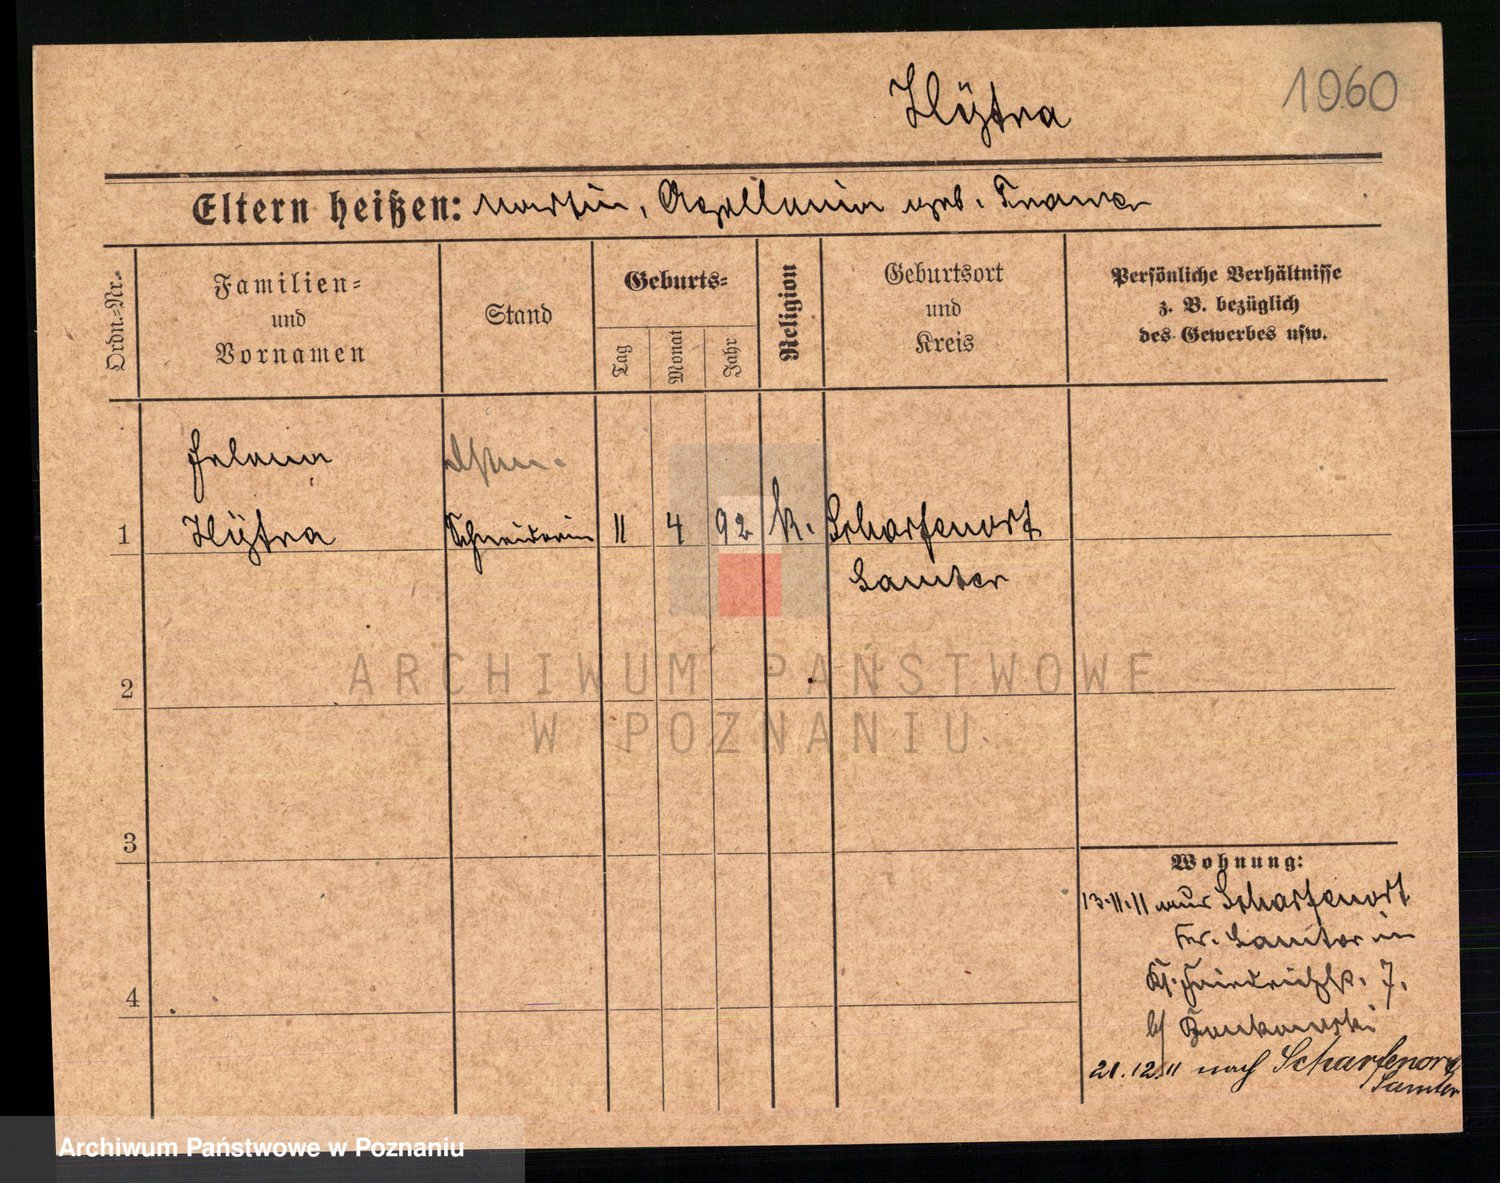 1960
Eltern heißen: Martin, geb. Franz
Ordn.-Nr.
Familien-
und
Vornamen
Stand
Geburts-
Tag
Monat
Jahr
Religion
Geburtsort
und
Kreis
Persönliche Verhältnisse
z. B. bezüglich
des Gewerbes usw.
Helena
1 Schneiderin 11 4 92 k. Scharfenort
Samter
2
3
4
ARCHIWUM PAŃSTWOWE
W POZNANIU
Wohnung:
13.11.11 aus Scharfenort
Kr. Samter in
7.
b/
21.12.11 nach Scharfenort
Samter
Archiwum Państwowe w Poznaniu